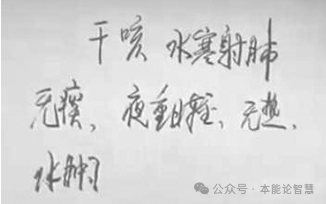 干咳 水寒射肺
无痰、夜重日轻、无热、
水肿
公众号·本能论智慧